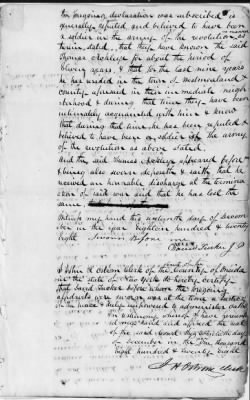 the foregoing declaration was subscribed is
generally reputed and believed to have been
a soldier in the army of the revolution as
therein stated, that they have known the said
Thomas for about the period of
eleven years, & that for the last nine years
he has resided in the town of Westmoreland
county aforesaid in their immediate neigh
borhood & during that time they have been
intimately acquainted with him & know
that during that time he has been reputed &
believed to have been a soldier of the army
of the revolution as above stated.
And the said Thomas appeared before me
& being also sworn deposeth & saith that he
received an honorable discharge at the termina
tion of said war and that he has lost the
same
Witness my hand this day of decem
ber in the year Eighteen hundred & twenty
Eight Sworn Before me
David Tucker J.P.
I John H. Ostrom Clerk of the County of Oneida
in the state of New York do hereby certify
that David Tucker before whom the foregoing
affidavits were sworn was at the time a Justice
of the peace & duly empowered to administer oaths
In testimony whereof I have hereunto
set my hand and affixed the seal
of the said Court this day
of december in the year one thousand
Eight hundred & twenty eight
J. H. Ostrom Clerk